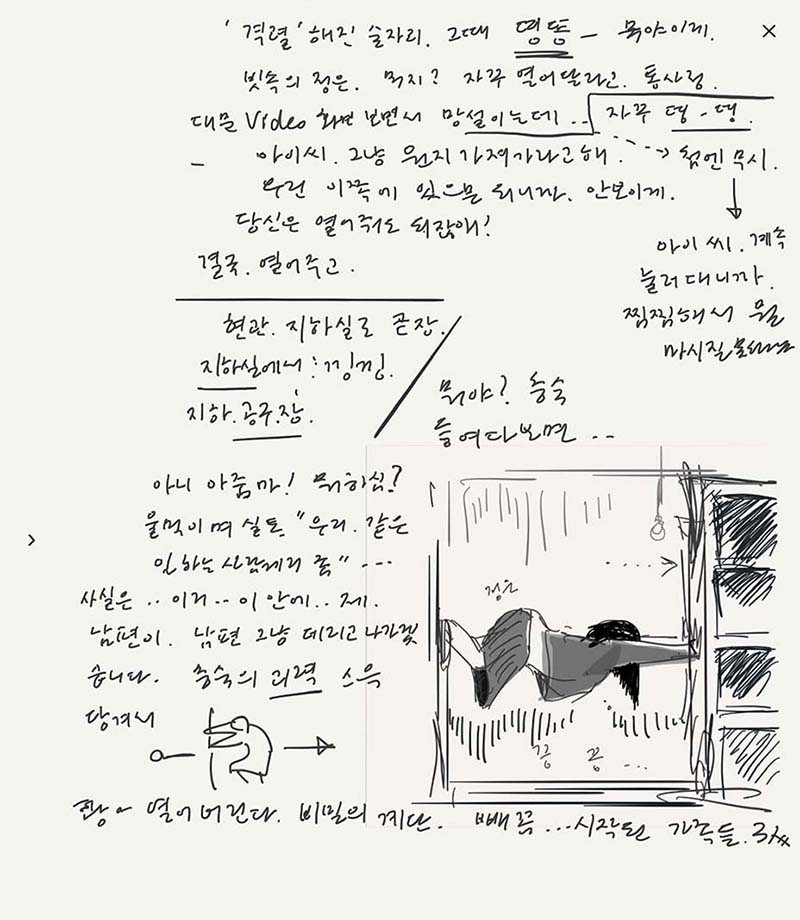 '격렬'해진 술자리. 그때 띵똥 - 뭐야이게.
빗속의 정은. 뭐지? 자꾸 열어달라고. 통사정.
대문 Video 화면 보면서 망설이는데 ..
자꾸 띵-띵.
아이씨. 그냥 뭔지 가져가라고해.
첨엔 무시.
우린 이쪽에 있으면 되니까. 안보이게.
당신은 열어줘도 되잖애!
결국. 열어주고.
아이 씨. 계속
눌러대니까.
찜찜해서 뭘
마시질
현관. 지하실로 곧장.
지하실에서 : 낑낑.
지하.공구.장.
뭐야? 충숙
들여다보면 ..
아니 아줌마! 뭐하심?
울먹이며 실토 "우리. 같은
일하는 사람끼리 쫌" ...
사실은 .. 이거 .. 이 안에 .. 제.
남편이. 남편 그냥 데리고 나가겠
습니다. 충숙의 괴력 스윽
당겨서
정은
끙 끙 ...
쾅~ 열어버린다. 비밀의 계단. 빼꼼 ... 시작된 가족들.